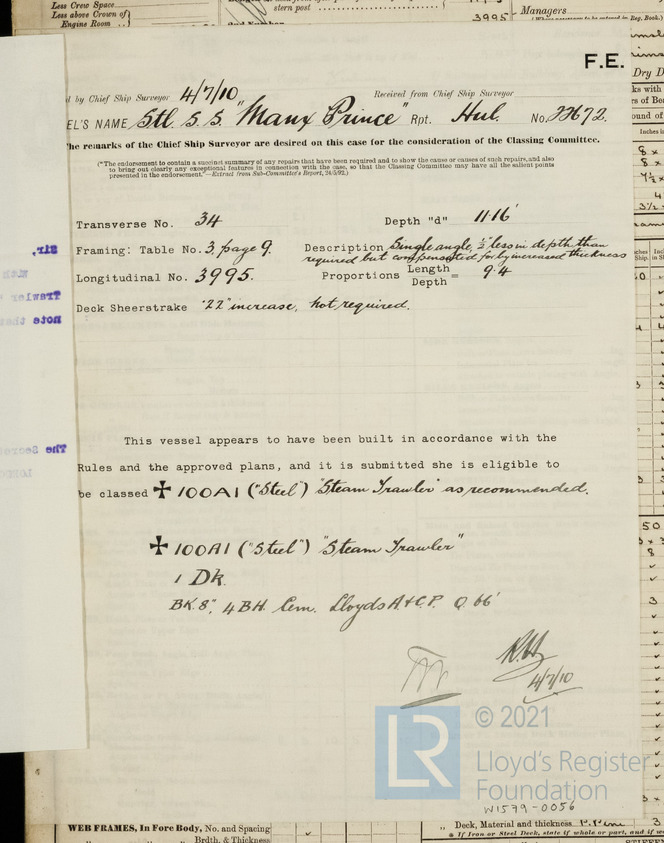 Less Crew Space
Less above Crown of
Engine Room
stern post
3995
Managers
F.E.
Dry D
d by Chief Ship Surveyor 4/7/10 Received from Chief Ship Surveyor
EL'S NAME Stl. S.S. "Manx Prince" Rpt. Hul. No. 22672.
The remarks of the Chief Ship Surveyor are desired on this case for the consideration of the Classing Committee.
("The endorsement to contain a succinct summary of any repairs that have been required and to show the cause or causes of such repairs, and also
to bring out clearly any exceptional features in connection with the case, so that the Classing Committee may have all the salient points
presented in the endorsement."—Extract from Sub-Committee's Report, 24/5/92.)
Transverse No. 34 Depth "d" 11·16'
Framing: Table No. 3, page 9. Description Single angle, ½" less in depth than
required but compensated for by increased thickness
Longitudinal No. 3995. Proportions Length/Depth = 9·4
Deck Sheerstrake ·22" increase, not required.
Sir,
Trawler
note that
The Secre
This vessel appears to have been built in accordance with the
Rules and the approved plans, and it is submitted she is eligible to
be classed ✠ 100A1 ("Steel") "Steam Trawler" as recommended.
✠ 100A1 ("Steel") "Steam Trawler"
1 Dk.
BK. 8", 4 BH. Cem. Lloyds A&C.P. Q 66'
4/7/10
LR © 2021
Lloyd's Register
Foundation
W1579-0056
WEB FRAMES, In Fore Body, No. and Spacing
Brdth. & Thickness
" Deck, Material and thickness
* If Iron or Steel Deck, state if whole or part, and if